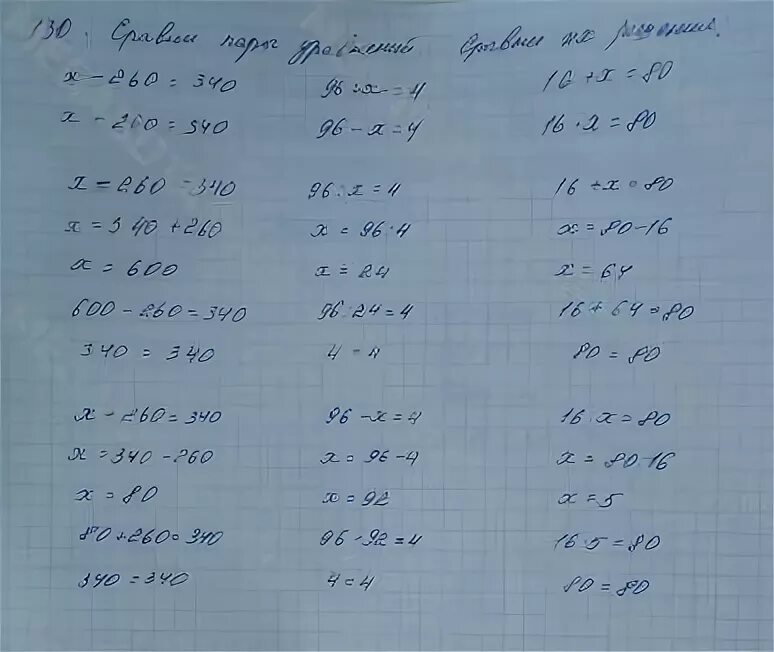 130. Сравни пары уравнений. Сравни их решения.
x - 260 = 340 96 : x = 4 16 + x = 80
x - 260 = 340 96 - x = 4 16 · x = 80
x - 260 = 340 96 : x = 4 16 + x = 80
x = 340 + 260 x = 96 : 4 x = 80 - 16
x = 600 x = 24 x = 64
600 - 260 = 340 96 : 24 = 4 16 + 64 = 80
340 = 340 4 = 4 80 = 80
x - 260 = 340 96 - x = 4 16 · x = 80
x = 340 - 260 x = 96 - 4 x = 80 : 16
x = 80 x = 92 x = 5
80 + 260 = 340 96 - 92 = 4 16 · 5 = 80
340 = 340 4 = 4 80 = 80